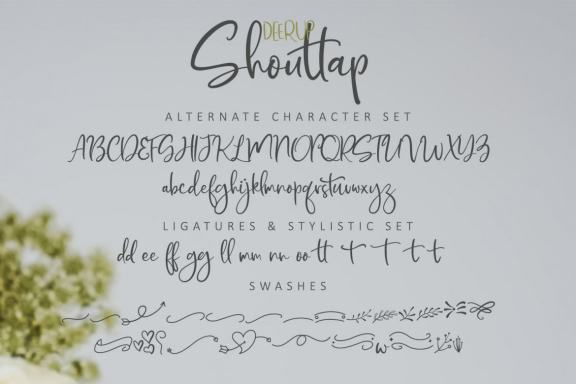 DEERUP
Shouttap
ALTERNATE CHARACTER SET
ABCDEFGHIJKLMNOPQRSTUVWXYZ
abcdefghijklmnopqrstuvwxyz
LIGATURES & STYLISTIC SET
dd ee ff gg ll mm nn oo tt t t t t
SWASHES